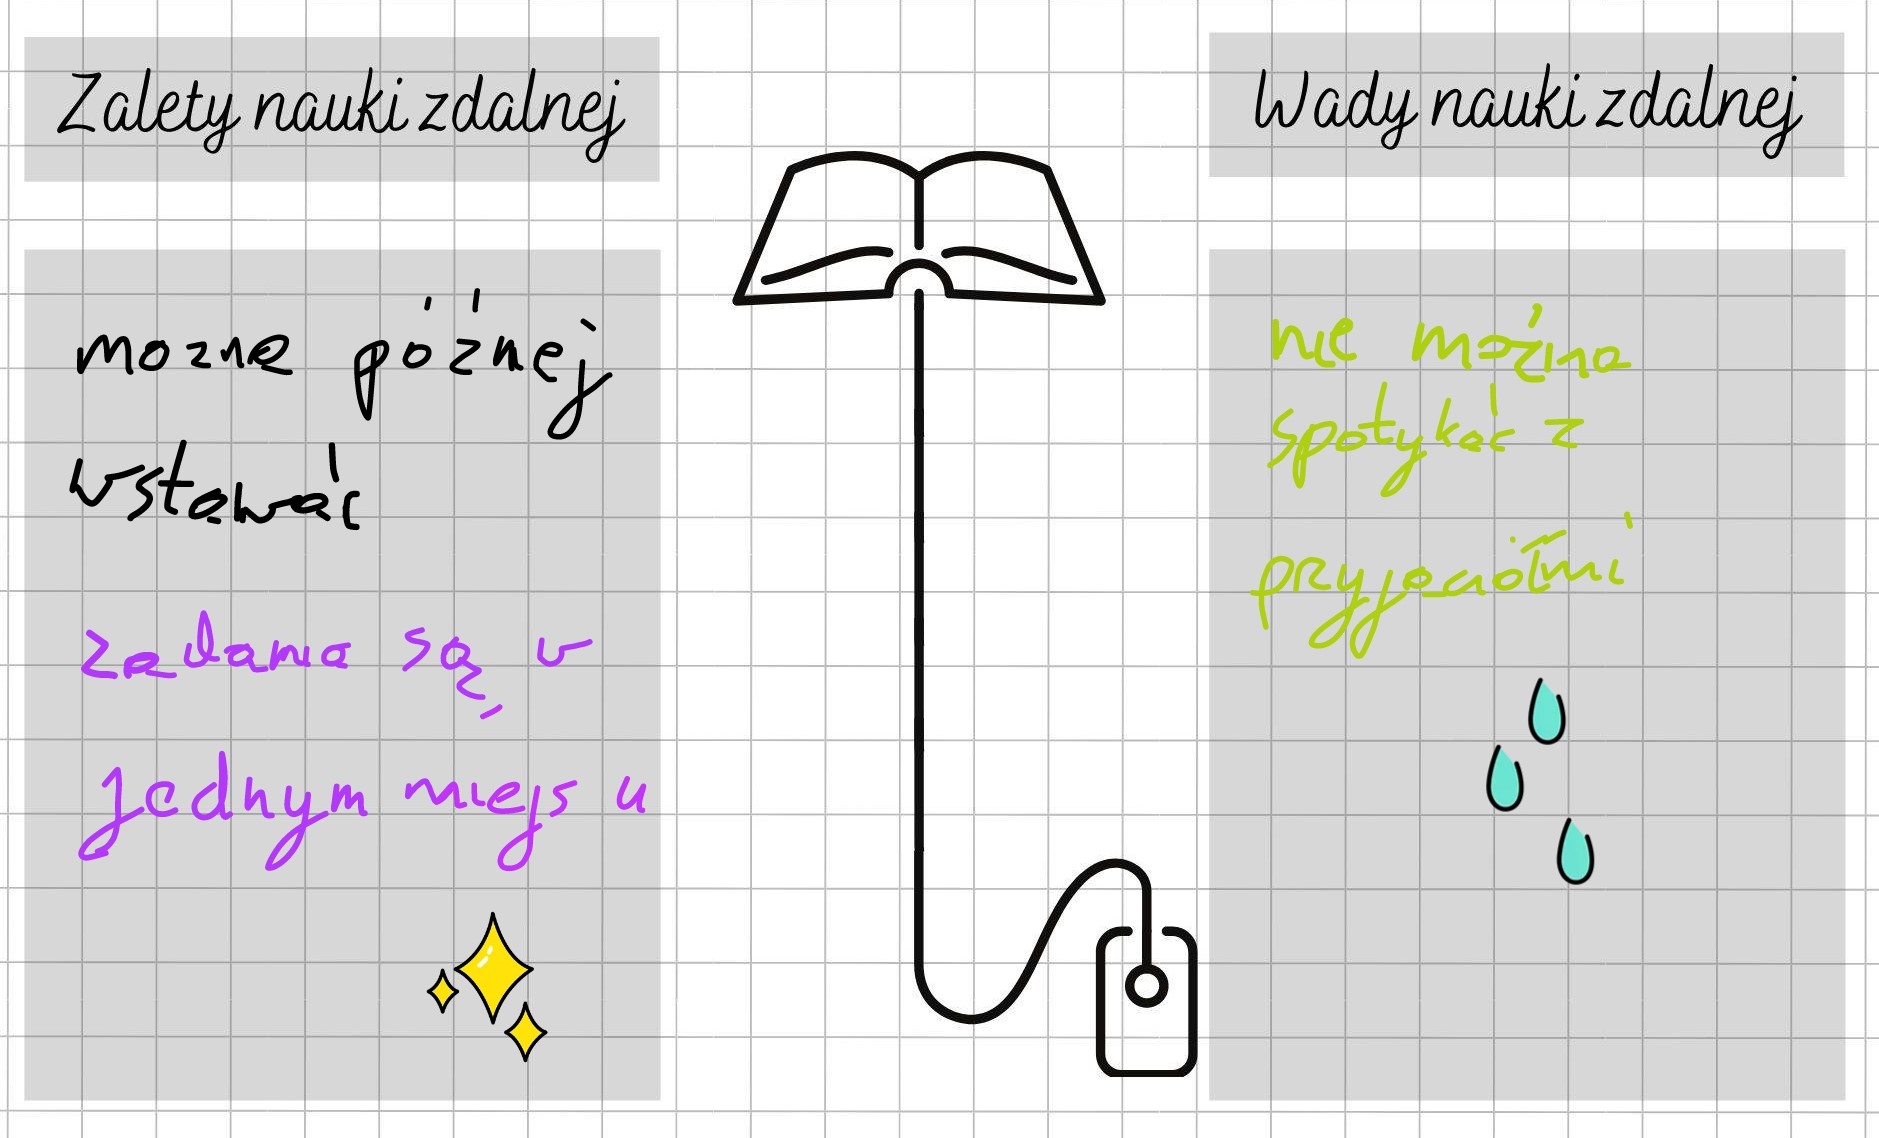 Zalety nauki zdalnej
można póżnej
wstawać
zadania są w
jednym miejscu
Wady nauki zdalnej
nie można
spotykać z
pryjaciółmi